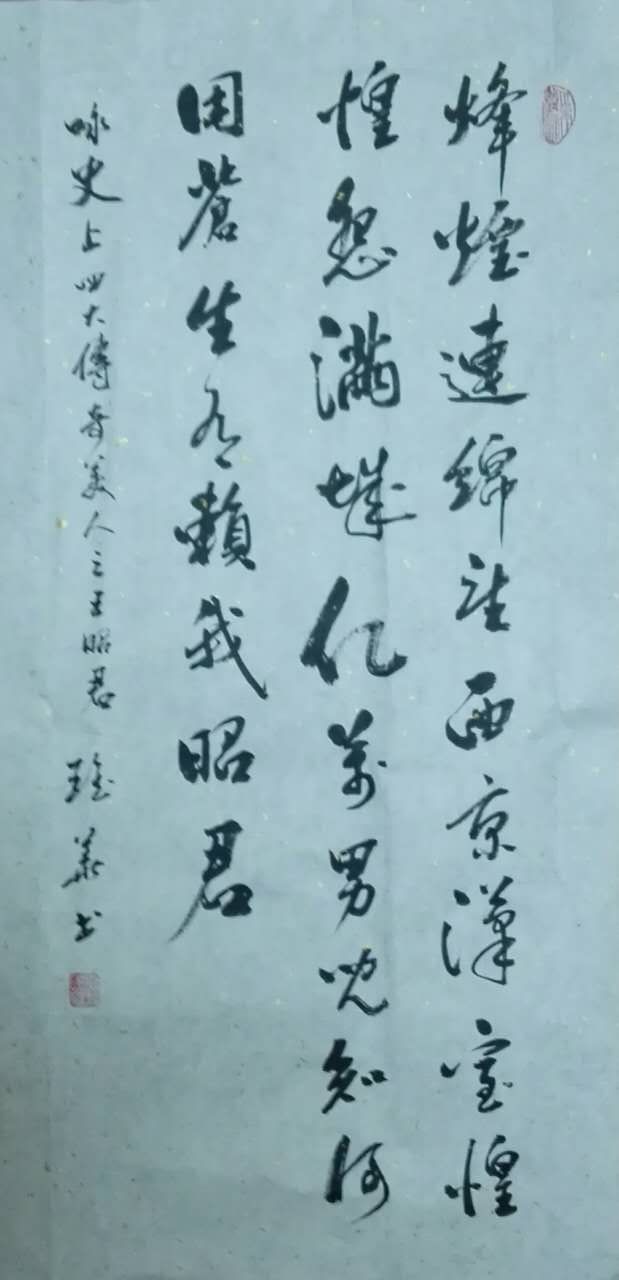 烽煙連綿望西京漢室惶
惶怨滿城亿萬男兒知何
用蒼生有賴我昭君
咏史上四大傳奇美人之王昭君 華书